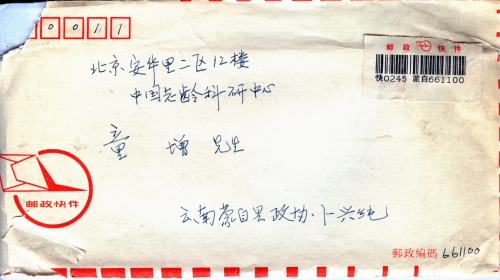 00011
邮政 快件
快0245 蒙自661100
北京安华里二区12楼
中国老龄科研中心
童 增 先生
邮政快件
云南蒙自县政协·卜兴纯
邮政编码 661100